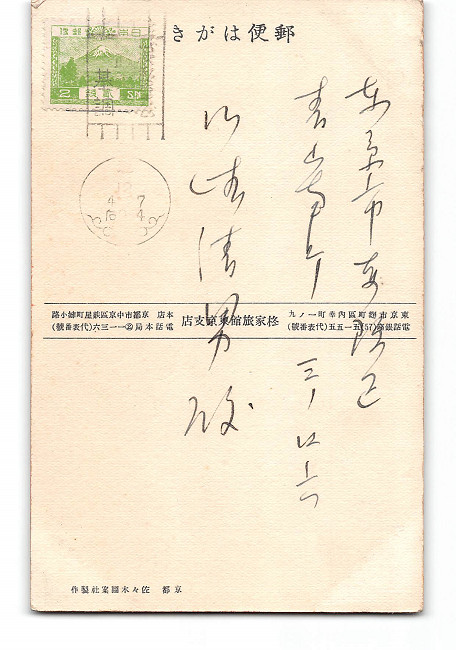 郵便はがき
日本郵便
貳錢
2
東京市赤坂区
青山南町 三ノ四六
山崎清男殿
東京市麴町區內幸町一ノ九
電話銀座(57)五一五五(代表番號)
柊家旅館東京支店
本店 京都市中京區麩屋町姉小路
電話本局②一一三六(代表番號)
京都 佐々木圖案社製作